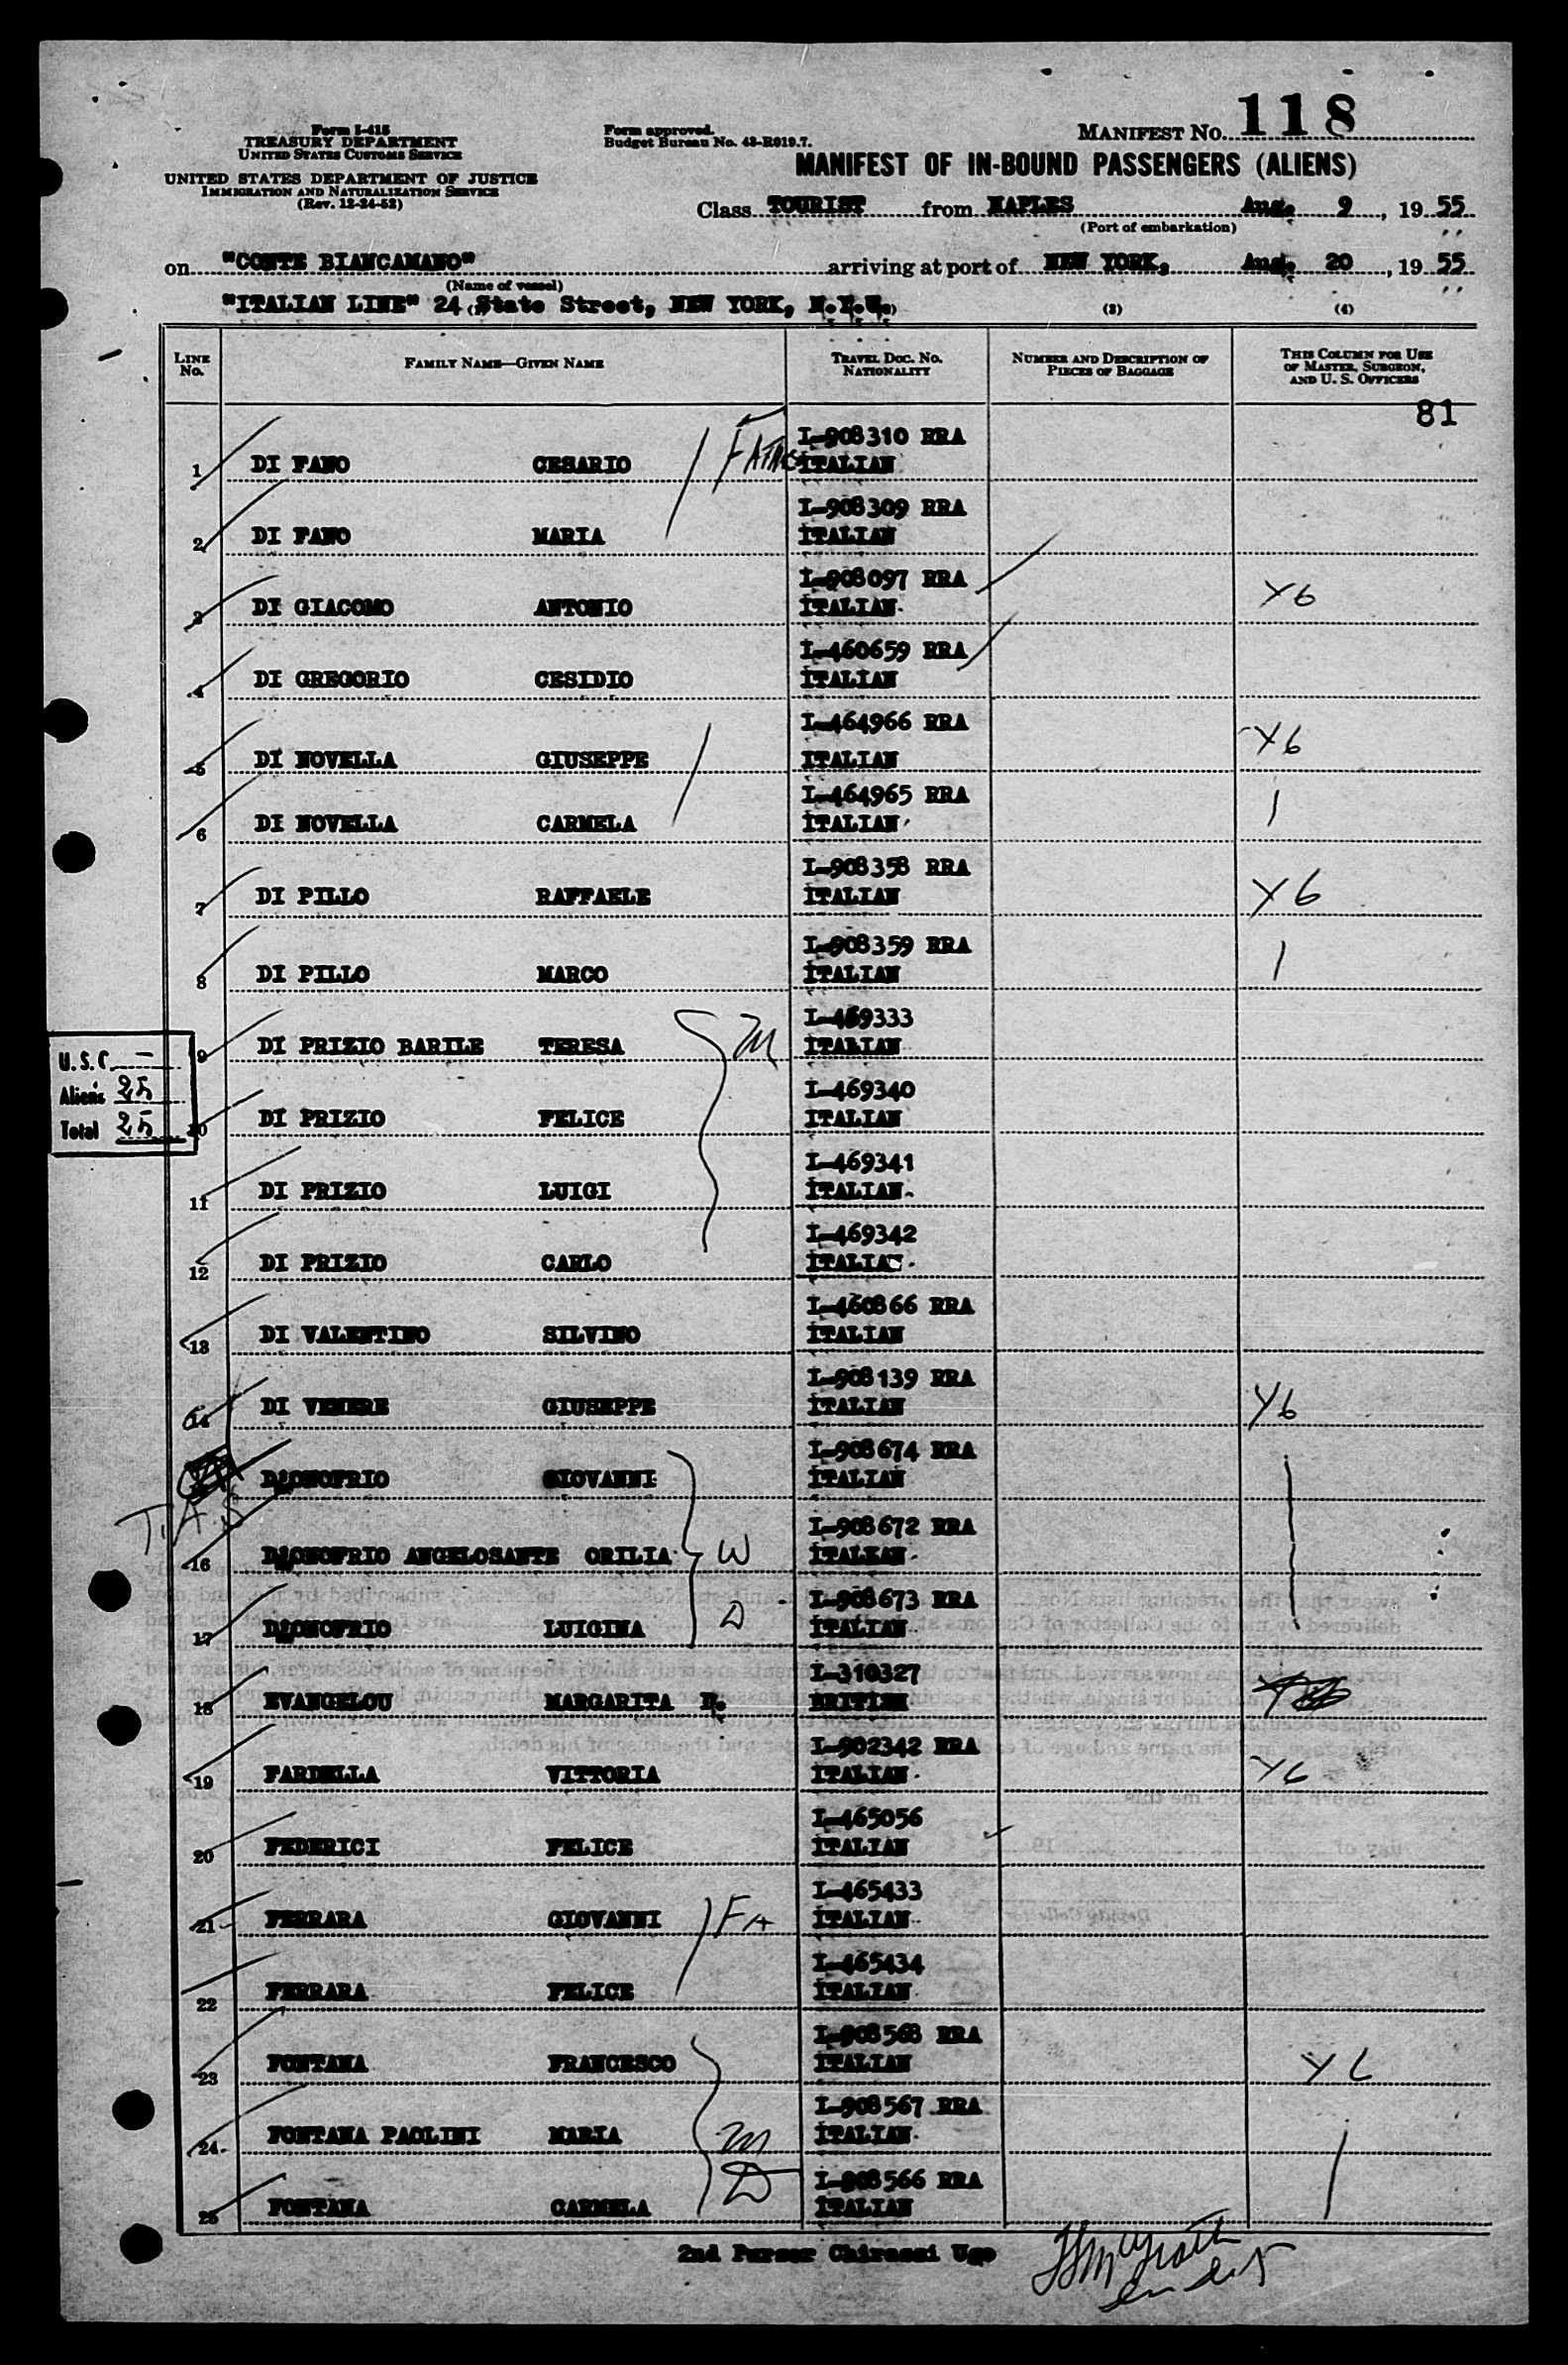 Form I-418
TREASURY DEPARTMENT
UNITED STATES CUSTOMS SERVICE
UNITED STATES DEPARTMENT OF JUSTICE
IMMIGRATION AND NATURALIZATION SERVICE
(Rev. 12-24-52)
Form approved.
Budget Bureau No. 43-R019.7.
MANIFEST NO. 118
MANIFEST OF IN-BOUND PASSENGERS (ALIENS)
Class TOURIST from NAPLES Aug. 9, 1955
(Port of embarkation)
on "CONTE BIANCAMANO" arriving at port of NEW YORK, Aug. 20, 1955
(Name of vessel)
"ITALIAN LINE" 24 State Street, NEW YORK, N.Y. (3) (4)
LINE NO. FAMILY NAME—GIVEN NAME TRAVEL DOC. NO. NATIONALITY NUMBER AND DESCRIPTION OF PIECES OF BAGGAGE THIS COLUMN FOR USE OF MASTER, SURGEON, AND U. S. OFFICERS
81
I-908310 RRA
1 DI FANO CESARIO ITALIAN
I-908309 RRA
2 DI FANO MARIA ITALIAN
I-908097 RRA
3 DI GIACOMO ANTONIO ITALIAN Y6
I-460659 RRA
4 DI GREGORIO CESIDIO ITALIAN
I-464966 RRA
5 DI NOVELLA GIUSEPPE ITALIAN Y6
I-464965 RRA
6 DI NOVELLA CARMELA ITALIAN
I-908358 RRA
7 DI PILLO RAFFAELE ITALIAN Y6
I-908359 RRA
8 DI PILLO MARCO ITALIAN
I-469333
9 DI PRIZIO BARILE TERESA M ITALIAN
U.S.C. —
Aliens 25
Total 25
I-469340
10 DI PRIZIO FELICE ITALIAN
I-469341
11 DI PRIZIO LUIGI ITALIAN
I-469342
12 DI PRIZIO CARLO ITALIAN
I-460866 RRA
13 DI VALENTINO SILVINO ITALIAN
I-908139 RRA
14 DI VENERE GIUSEPPE ITALIAN Y6
I-908674 RRA
DIONOFRIO GIOVANNI ITALIAN
I-908672 RRA
16 DIONOFRIO ANGELOSANTE ORILIA W ITALIAN
I-908673 RRA
17 DIONOFRIO LUIGINA D ITALIAN
I-310327
18 EVANGELOU MARGARITA N. BRITISH
I-902342 RRA
19 FARDELLA VITTORIA ITALIAN Y6
I-465056
20 FEDERICI FELICE ITALIAN
I-465433
21 FERRARA GIOVANNI FA ITALIAN
I-465434
22 FERRARA FELICE ITALIAN
I-908568 RRA
23 FONTANA FRANCESCO ITALIAN Y6
I-908567 RRA
24 FONTANA PAOLINI MARIA M ITALIAN
I-908566 RRA
25 FONTANA CARMELA D ITALIAN
2nd Purser Chirassi Ugo